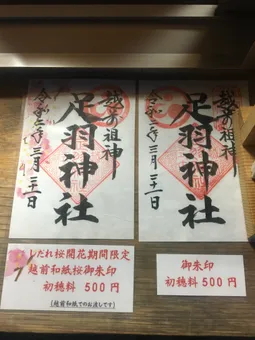 越前祖神
足羽神社
令和三年三月二十一日
越前祖神
足羽神社
令和三年三月二十一日
しだれ桜開花期間限定
越前和紙桜御朱印
初穂料 500円
(越前和紙でのお渡しです)
御朱印
初穂料 500円